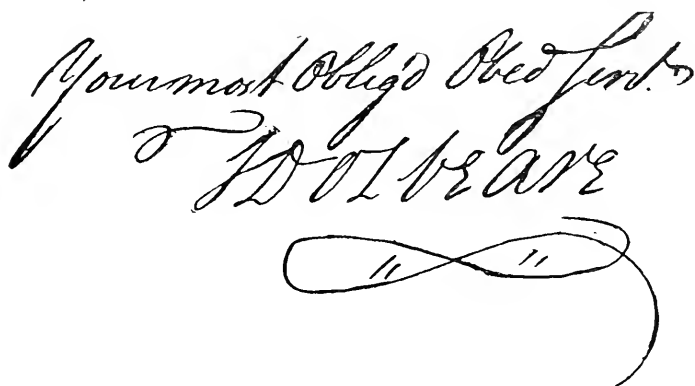 Your most Oblig'd Obed Serv.t
J DOLbEARE